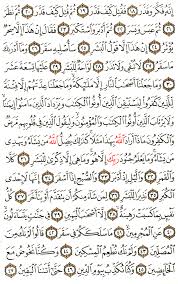 إِنَّهُۥ فَكَّرَ وَقَدَّرَ ١٨ فَقُتِلَ كَيْفَ قَدَّرَ ١٩ ثُمَّ قُتِلَ كَيْفَ قَدَّرَ ٢٠ ثُمَّ نَظَرَ
٢١ ثُمَّ عَبَسَ وَبَسَرَ ٢٢ ثُمَّ أَدْبَرَ وَٱسْتَكْبَرَ ٢٣ فَقَالَ إِنْ هَٰذَآ إِلَّا سِحْرٌ
يُؤْثَرُ ٢٤ إِنْ هَٰذَآ إِلَّا قَوْلُ ٱلْبَشَرِ ٢٥ سَأُصْلِيهِ سَقَرَ ٢٦ وَمَآ أَدْرَىٰكَ مَا سَقَرُ
٢٧ لَا تُبْقِى وَلَا تَذَرُ ٢٨ لَوَّاحَةٌ لِّلْبَشَرِ ٢٩ عَلَيْهَا تِسْعَةَ عَشَرَ
٣٠ وَمَا جَعَلْنَآ أَصْحَٰبَ ٱلنَّارِ إِلَّا مَلَٰٓئِكَةً وَمَا جَعَلْنَا عِدَّتَهُمْ إِلَّا فِتْنَةً
لِّلَّذِينَ كَفَرُوا۟ لِيَسْتَيْقِنَ ٱلَّذِينَ أُوتُوا۟ ٱلْكِتَٰبَ وَيَزْدَادَ ٱلَّذِينَ ءَامَنُوٓا۟ إِيمَٰنًا
وَلَا يَرْتَابَ ٱلَّذِينَ أُوتُوا۟ ٱلْكِتَٰبَ وَٱلْمُؤْمِنُونَ وَلِيَقُولَ ٱلَّذِينَ فِى قُلُوبِهِم مَّرَضٌ
وَٱلْكَٰفِرُونَ مَاذَآ أَرَادَ ٱللَّهُ بِهَٰذَا مَثَلًا كَذَٰلِكَ يُضِلُّ ٱللَّهُ مَن يَشَآءُ وَيَهْدِى
مَن يَشَآءُ وَمَا يَعْلَمُ جُنُودَ رَبِّكَ إِلَّا هُوَ وَمَا هِىَ إِلَّا ذِكْرَىٰ لِلْبَشَرِ ٣١ كَلَّا
وَٱلْقَمَرِ ٣٢ وَٱلَّيْلِ إِذْ أَدْبَرَ ٣٣ وَٱلصُّبْحِ إِذَآ أَسْفَرَ ٣٤ إِنَّهَا لَإِحْدَى
ٱلْكُبَرِ ٣٥ نَذِيرًا لِّلْبَشَرِ ٣٦ لِمَن شَآءَ مِنكُمْ أَن يَتَقَدَّمَ أَوْ يَتَأَخَّرَ ٣٧ كُلُّ
نَفْسٍۭ بِمَا كَسَبَتْ رَهِينَةٌ ٣٨ إِلَّآ أَصْحَٰبَ ٱلْيَمِينِ ٣٩ فِى جَنَّٰتٍ يَتَسَآءَلُونَ
٤٠ عَنِ ٱلْمُجْرِمِينَ ٤١ مَا سَلَكَكُمْ فِى سَقَرَ ٤٢ قَالُوا۟ لَمْ نَكُ مِنَ
ٱلْمُصَلِّينَ ٤٣ وَلَمْ نَكُ نُطْعِمُ ٱلْمِسْكِينَ ٤٤ وَكُنَّا نَخُوضُ مَعَ
ٱلْخَآئِضِينَ ٤٥ وَكُنَّا نُكَذِّبُ بِيَوْمِ ٱلدِّينِ ٤٦ حَتَّىٰٓ أَتَىٰنَا ٱلْيَقِينُ ٤٧